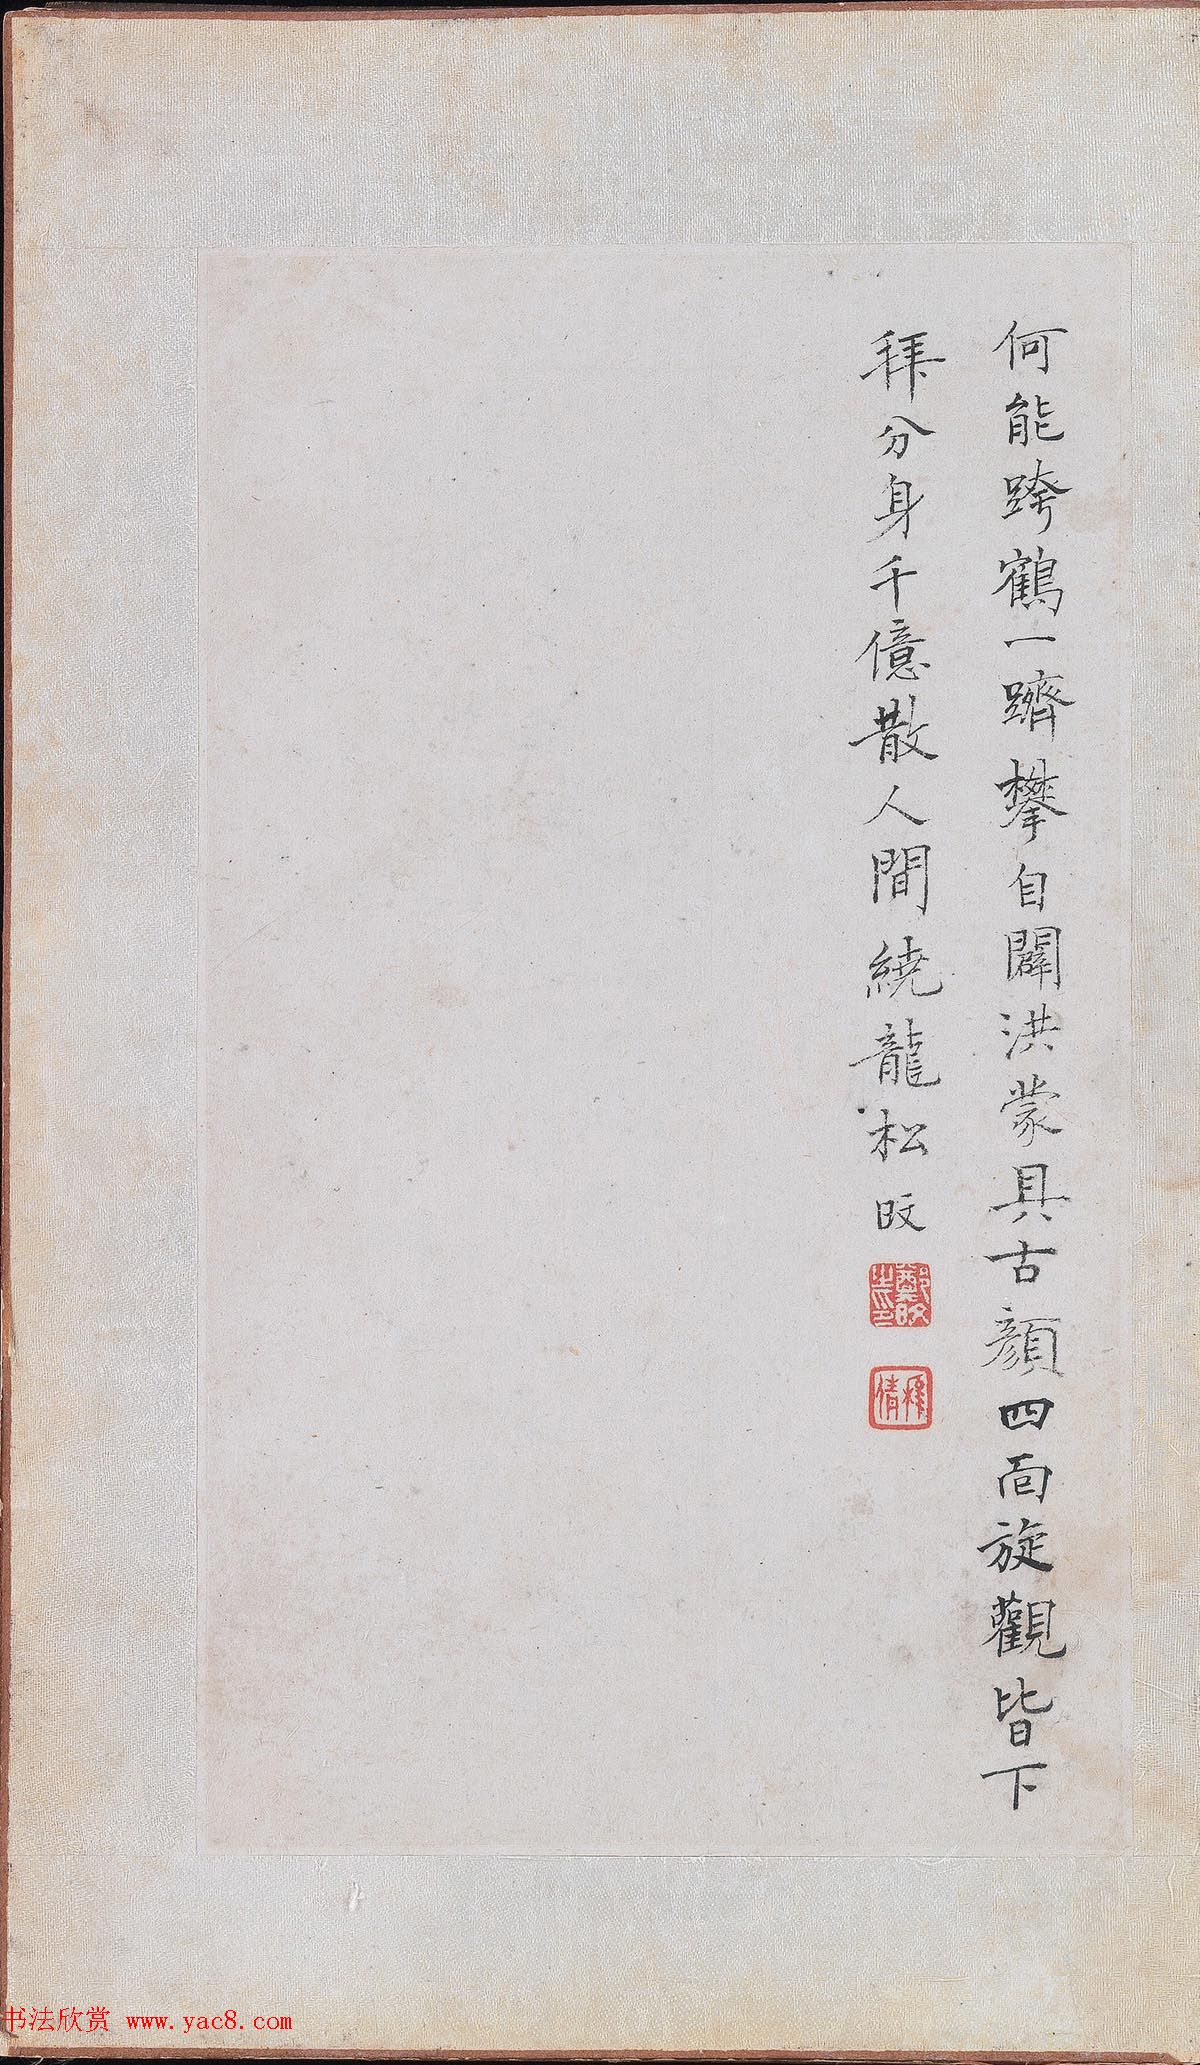 何能跨鶴一躋攀自闢洪蒙具古顏四面旋觀皆下
拜分身千億散人間繞龍松旼
鄭旼之印
书法欣赏 www.yac8.com